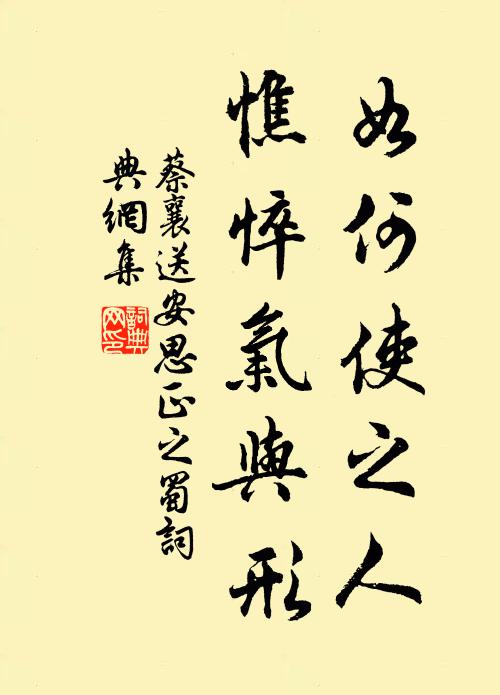 如何使之人
憔悴氣與形
蔡襄送安思正之蜀詞
典網集
詞典
网印